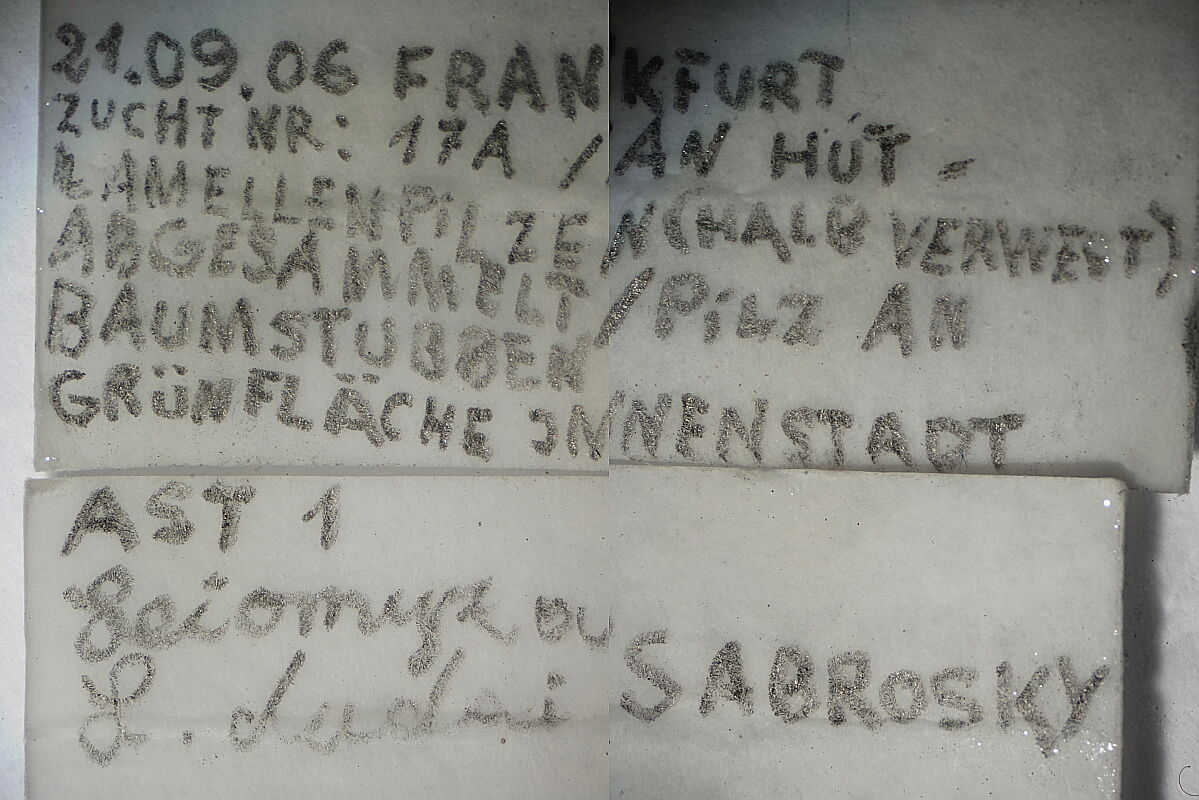 21.09.06 FRANKFURT
ZUCHT NR: 17A / AN HUT-
LAMELLENPILZEN (HALB VERWEST)
ABGESAMMELT / PILZ AN
BAUMSTUBBEN
GRÜNFLÄCHE INNENSTADT
AST 1
Leiomyza
L. dudai SABROSKY